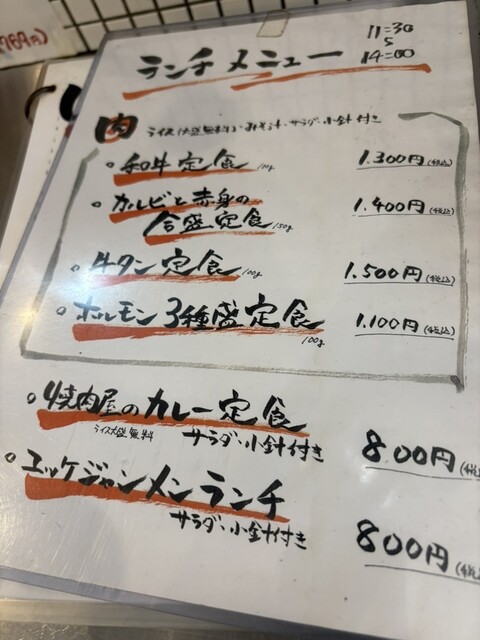 789円)
ランチメニュー
11:30
〜
14:00
肉 ライス(大盛無料)・おみそ汁・サラダ・小針付き
・和牛定食 100g 1.300円(税込)
・カルビと赤身の
合盛定食 150g 1.400円(税込)
・牛タン定食 100g 1.500円(税込)
・ホルモン3種盛定食 100g 1.100円(税込)
・焼肉屋のカレー定食
ライス大盛無料 サラダ・小針付き 800円(税
・ユッケジャンメンランチ
サラダ・小針付き 800円(税